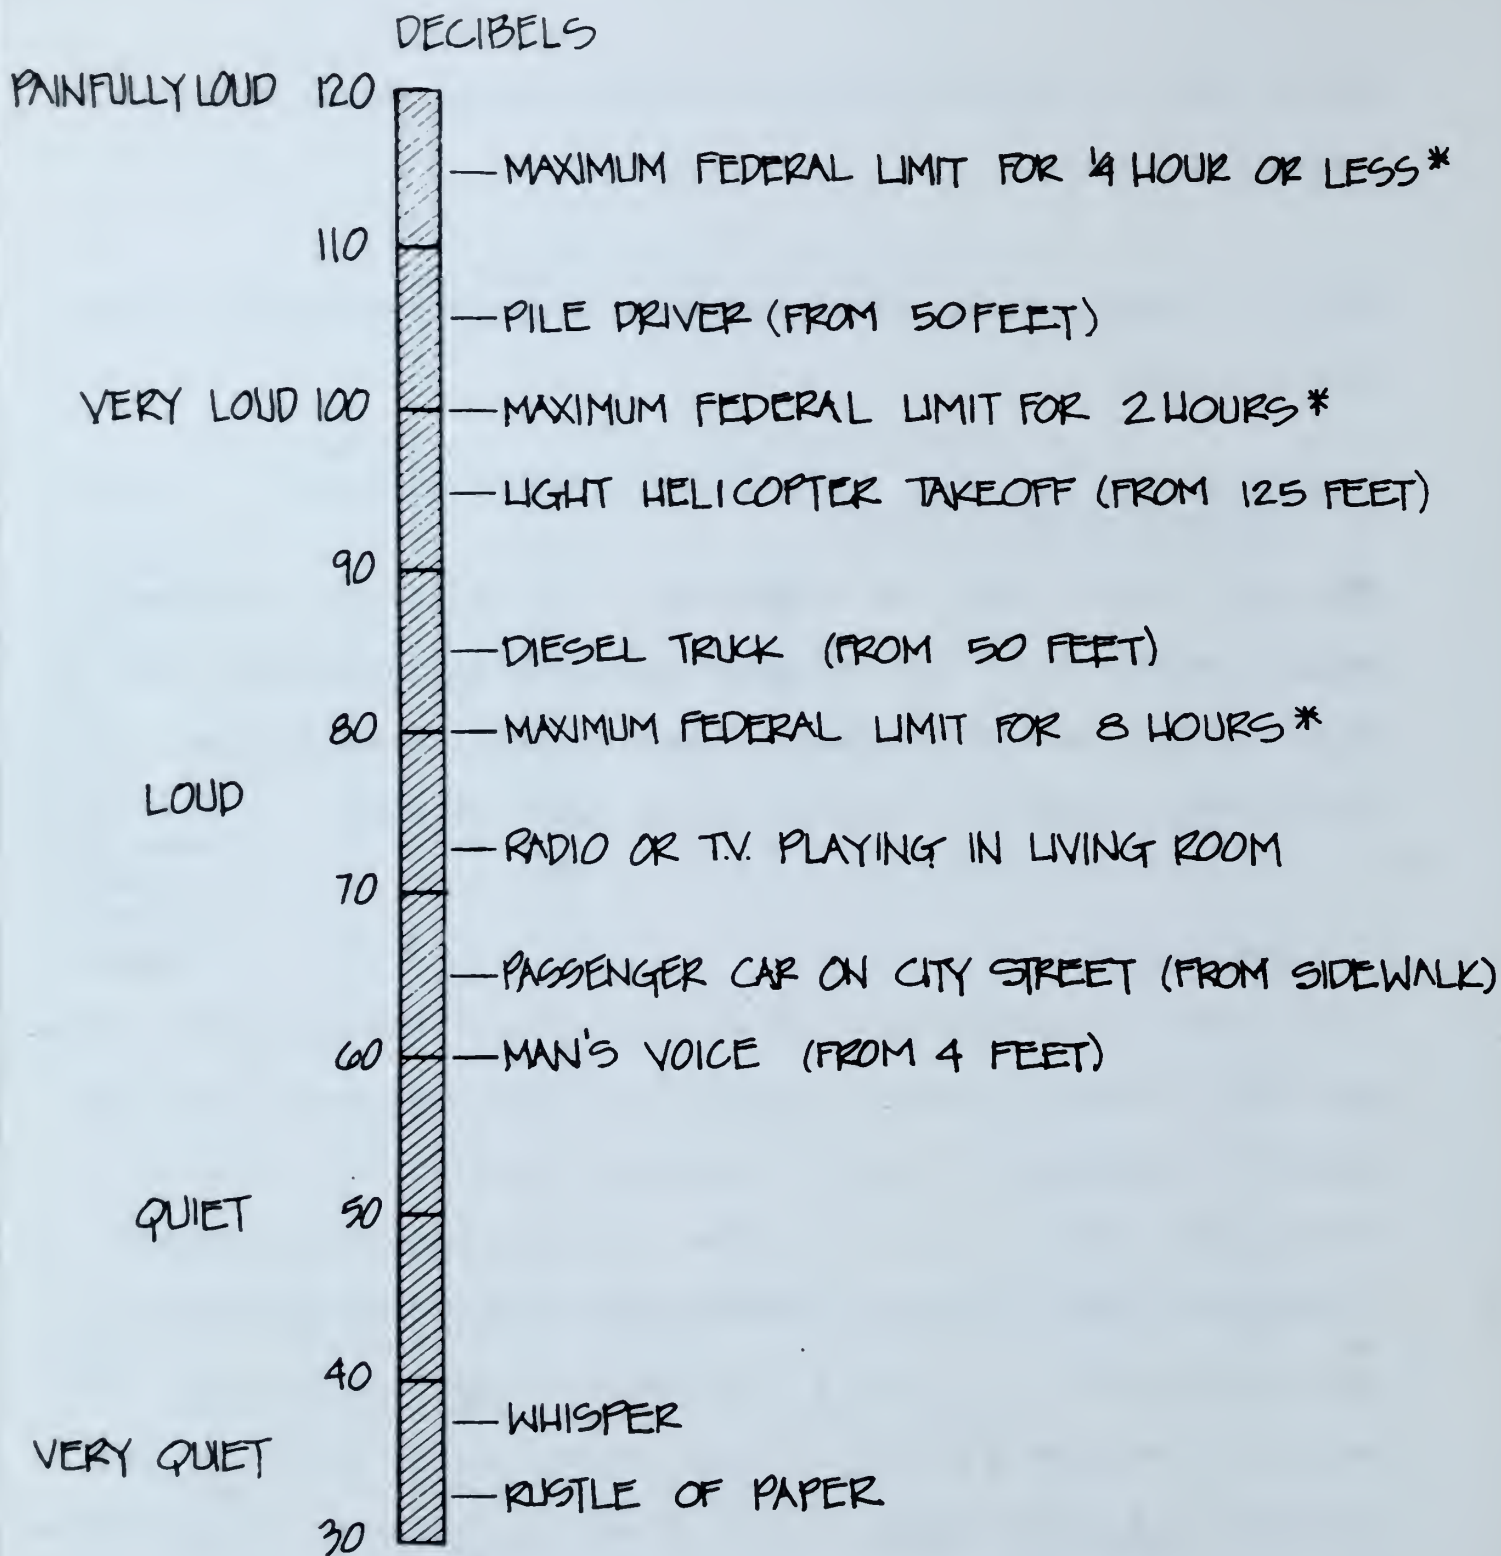 DECIBELS
PAINFULLY LOUD 120
MAXIMUM FEDERAL LIMIT FOR 1/4 HOUR OR LESS*
110
PILE DRIVER (FROM 50 FEET)
VERY LOUD 100 MAXIMUM FEDERAL LIMIT FOR 2 HOURS*
LIGHT HELICOPTER TAKEOFF (FROM 125 FEET)
90
DIESEL TRUCK (FROM 50 FEET)
80 MAXIMUM FEDERAL LIMIT FOR 8 HOURS*
LOUD
RADIO OR T.V. PLAYING IN LIVING ROOM
70
PASSENGER CAR ON CITY STREET (FROM SIDEWALK)
60 MAN'S VOICE (FROM 4 FEET)
QUIET 50
40
WHISPER
VERY QUIET
RUSTLE OF PAPER
30